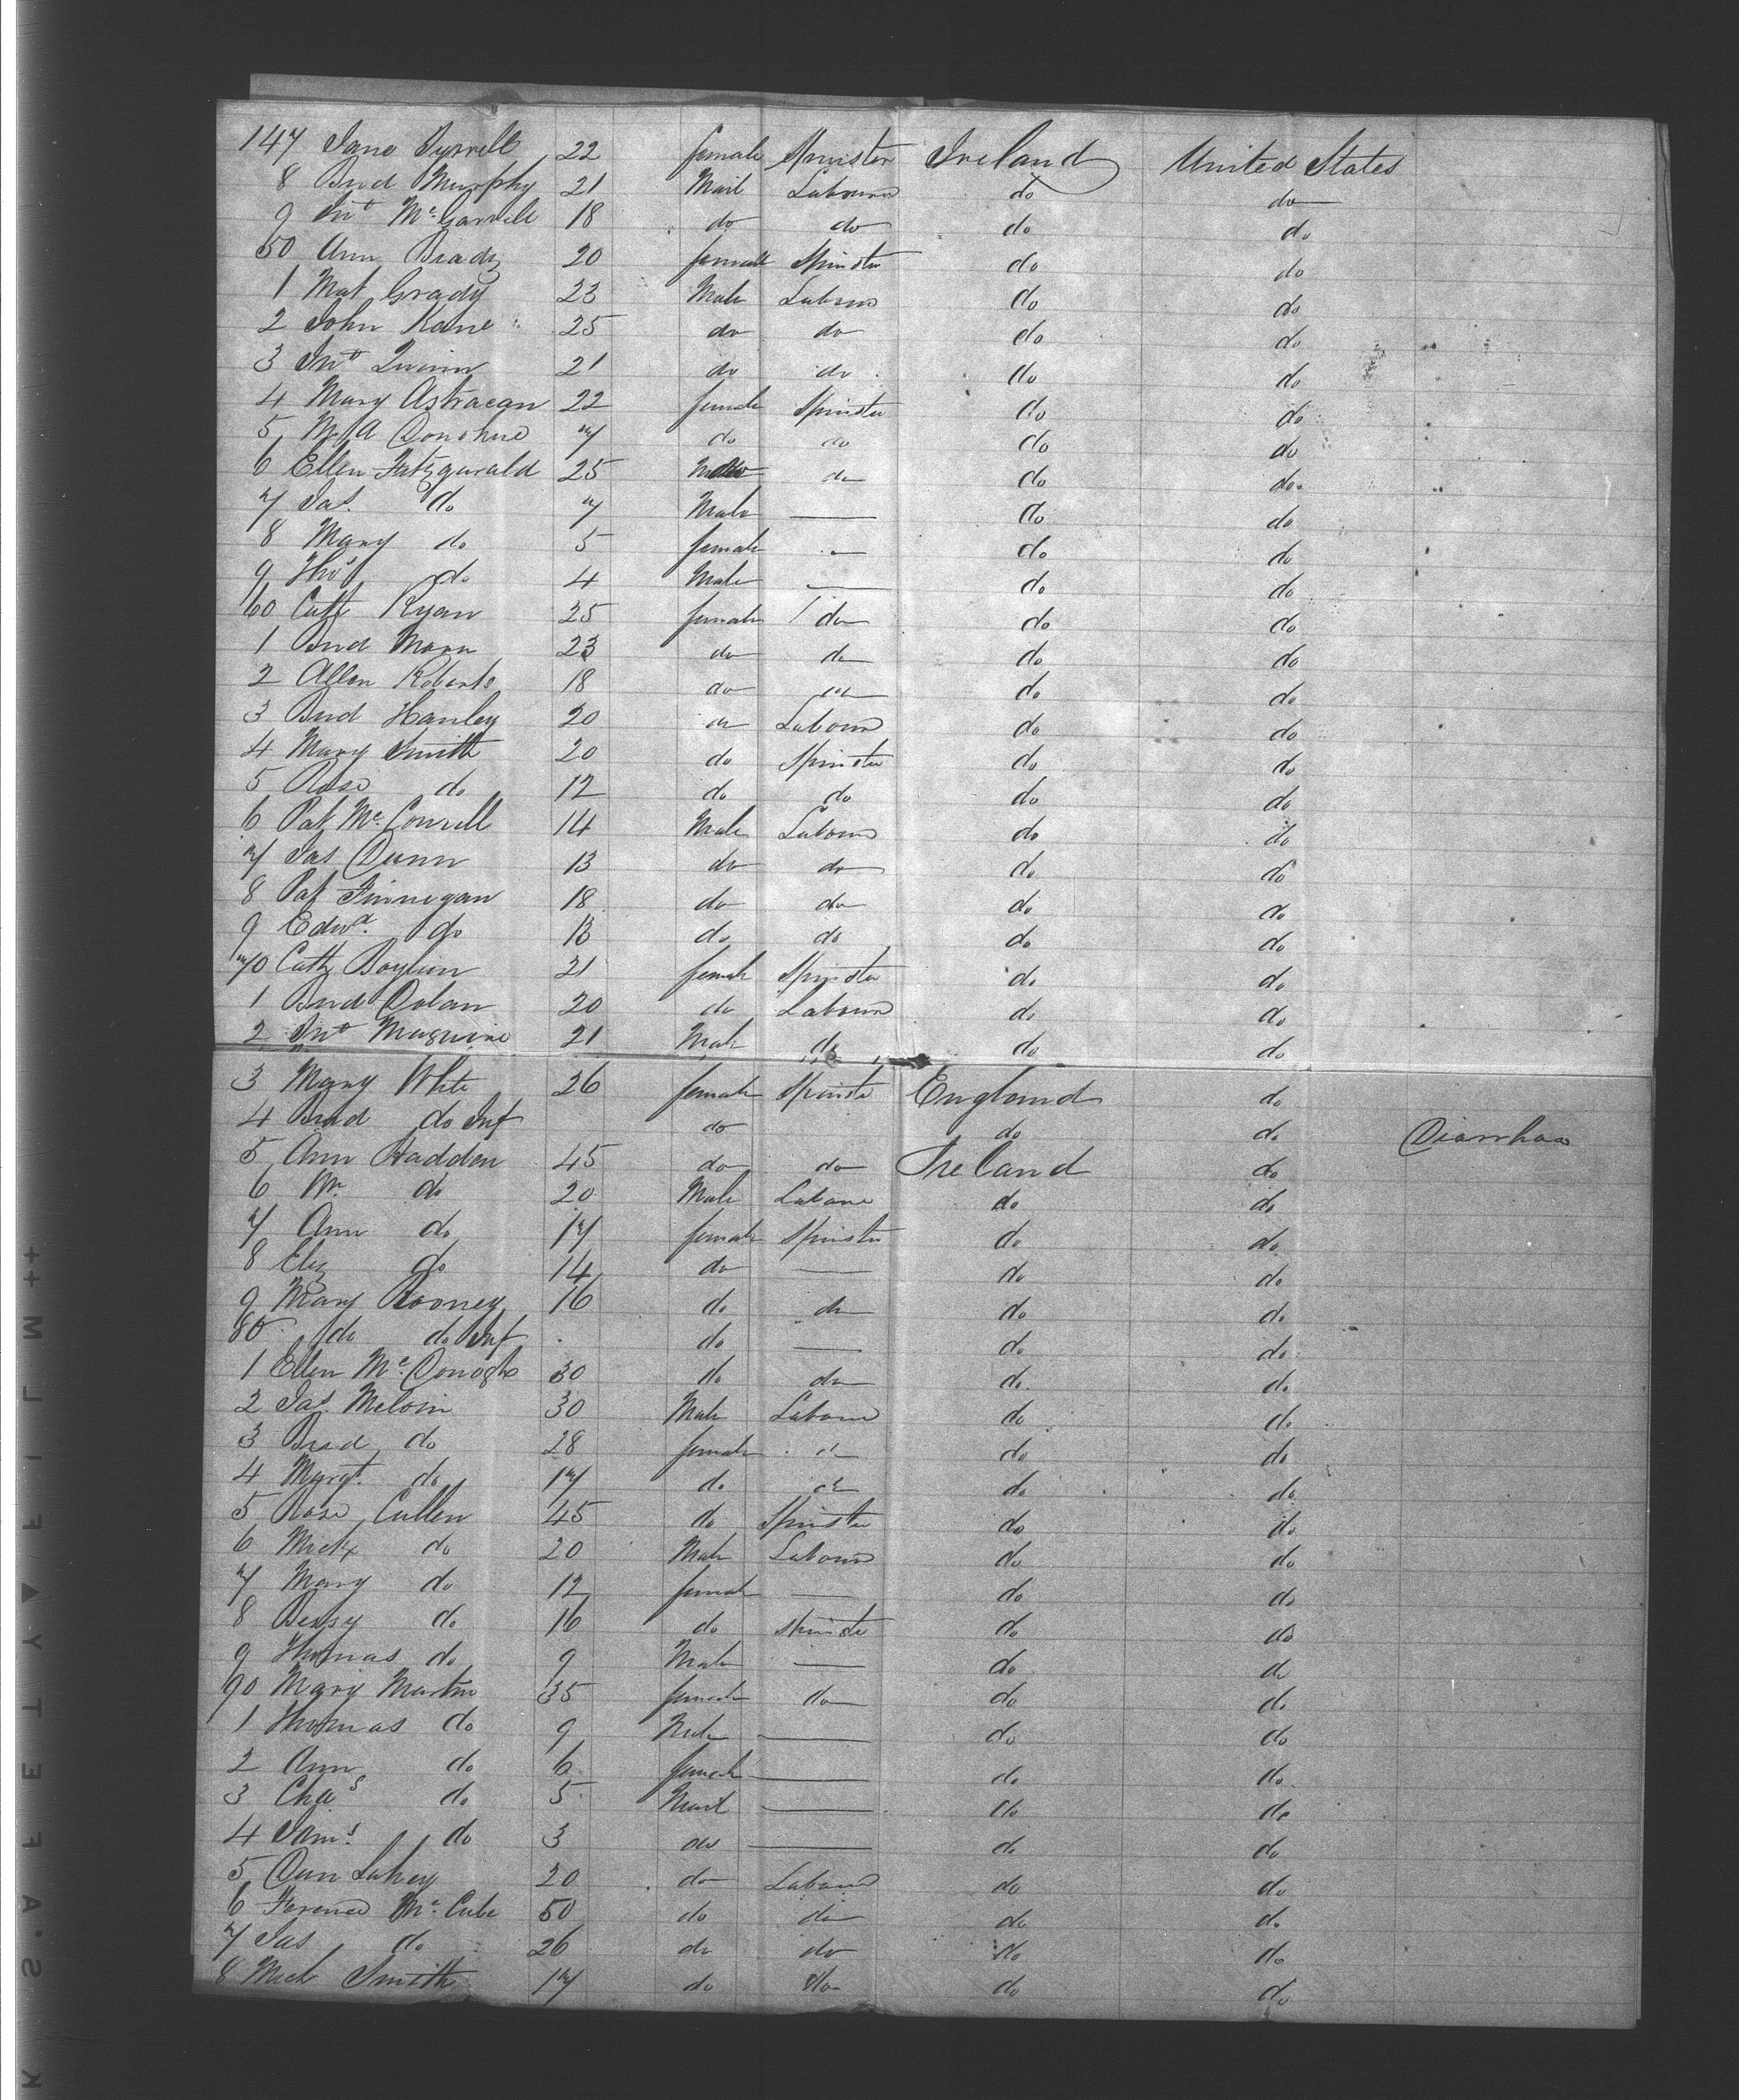 147 Jane Tyrrell 22 female Spinster Ireland United States
8 Brid Murphy 21 Mail Labourer do do
9 Jno McGarrell 18 do do do do
50 Ann Brady 20 female Spinster do do
1 Mat Grady 23 Male Labourer do do
2 John Kane 25 do do do do
3 Jno Quinn 21 do do do do
4 Mary Astracan 22 female Spinster do do
5 M A Donohue 7 do do do do
6 Ellen Fitzgerald 25 do do do
7 Jas. do 7 Male — do do
8 Mary do 5 female — do do
9 Thos do 4 Male — do do
60 Cath Ryan 25 female do do do
1 Brid Moran 23 do do do do
2 Allen Roberts 18 do do do do
3 Brid Hanley 20 do Labourer do do
4 Mary Smith 20 do Spinster do do
5 Rose do 12 do do do do
6 Pat McConnell 14 Male Labourer do do
7 Jas Dunn 13 do do do do
8 Pat Finnegan 18 do do do do
9 Edwd. do 13 do do do do
70 Cath Boylan 21 female Spinster do do
1 Brid Dolan 20 do Labourer do do
2 Jno Maguire 21 Male do do do
3 Mary White 26 female Spinster England do
4 Brid do Inf do do do Diarrhoa
5 Ann Hadden 45 do do Ireland do
6 Wm do 20 Male Laborer do do
7 Ann do 17 female Spinster do do
8 Eliz do 14 do — do do
9 Mary Rooney 16 do do do do
80 do do Inf do — do do
1 Ellen McDonogh 30 do do do do
2 Jas. Melvin 30 Male Labourer do do
3 Brid do 28 female do do do
4 Margt. do 17 do do do do
5 Rose Cullen 45 do Spinster do do
6 Mick do 20 Male Labourer do do
7 Mary do 12 female — do do
8 Bessy do 16 do Spinster do do
9 Thomas do 9 Male — do do
90 Mary Martin 35 female do do do
1 Thomas do 9 Male — do do
2 Ann do 6 female — do do
3 Chas do 5 Mail — do do
4 Jams. do 3 do — do do
5 Lahey 20 do Labourer do do
6 McCube 50 do do do do
7 Jas do 26 do do do do
8 Mich Smith 17 do do do do